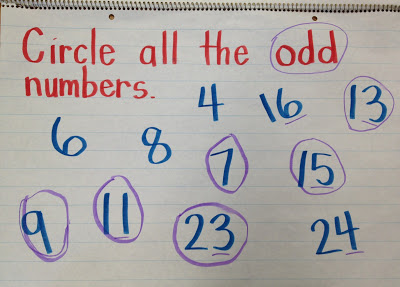 Circle all the odd
numbers.
4 16 13
6 8 7 15
9 11 23 24